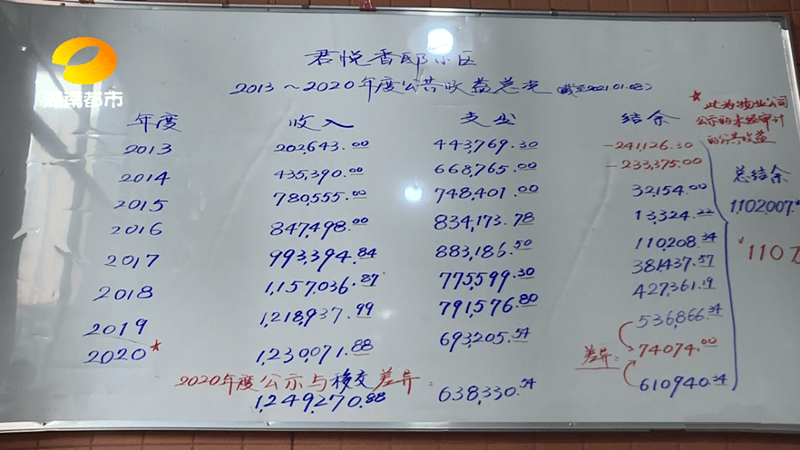 湖南都市
君悦香邸小区
2013～2020年度公共收益总况(截至2021.01.02)
★此为物业公司
公示的未经审计
的公共收益
年度 收入 支出 结余
2013 202,643.00 443,769.30 -241,126.30
2014 435,390.00 668,765.00 -233,375.00
2015 780,555.00 748,401.00 32,154.00
2016 847,498.00 834,173.78 13,324.22
2017 993,394.84 883,186.50 110,208.34
2018 1,157,036.87 775,599.30 381,437.57
2019 1,218,937.99 791,576.80 427,361.19
2020★ 1,230,071.88 693,205.54 536,866.34
差异: 74074.00
2020年度公示与移交差异:
1,249,270.88 638,330.54 610,940.34
总结余
1,102,007.
110万